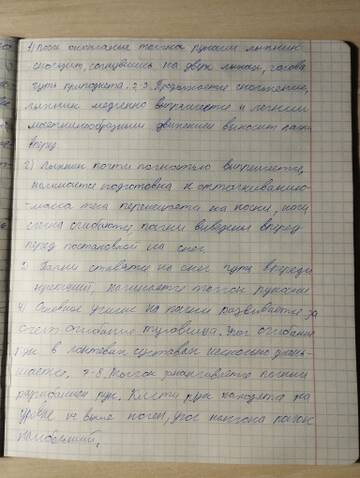 1) После окончания толчка руками лыжник
скользит, согнувшись на двух лыжах, голова
чуть приподнята. 2, 3. Продолжается скольжение,
лыжник медленно выпрямляется и легким
маятникообразным движением выносит палки
вперед.
2) Лыжник почти полностью выпрямляется,
начинается подготовка к отталкиванию-
масса тела перемещается на носки, ноги
слегка сгибаются, палки выведены вперед
перед постановкой на снег.
3) Палки ставятся на снег чуть впереди
креплений, начинается толчок руками
4) Основное усилие на палки развивается за
счет сгибания туловища. Угол сгибания
рук в локтевых суставах несколько умень-
шается. 7-8. Толчок заканчивается полным
разгибанием рук. Кисти рук находятся на
уровне и выше колен, угол наклона палок
наибольший.